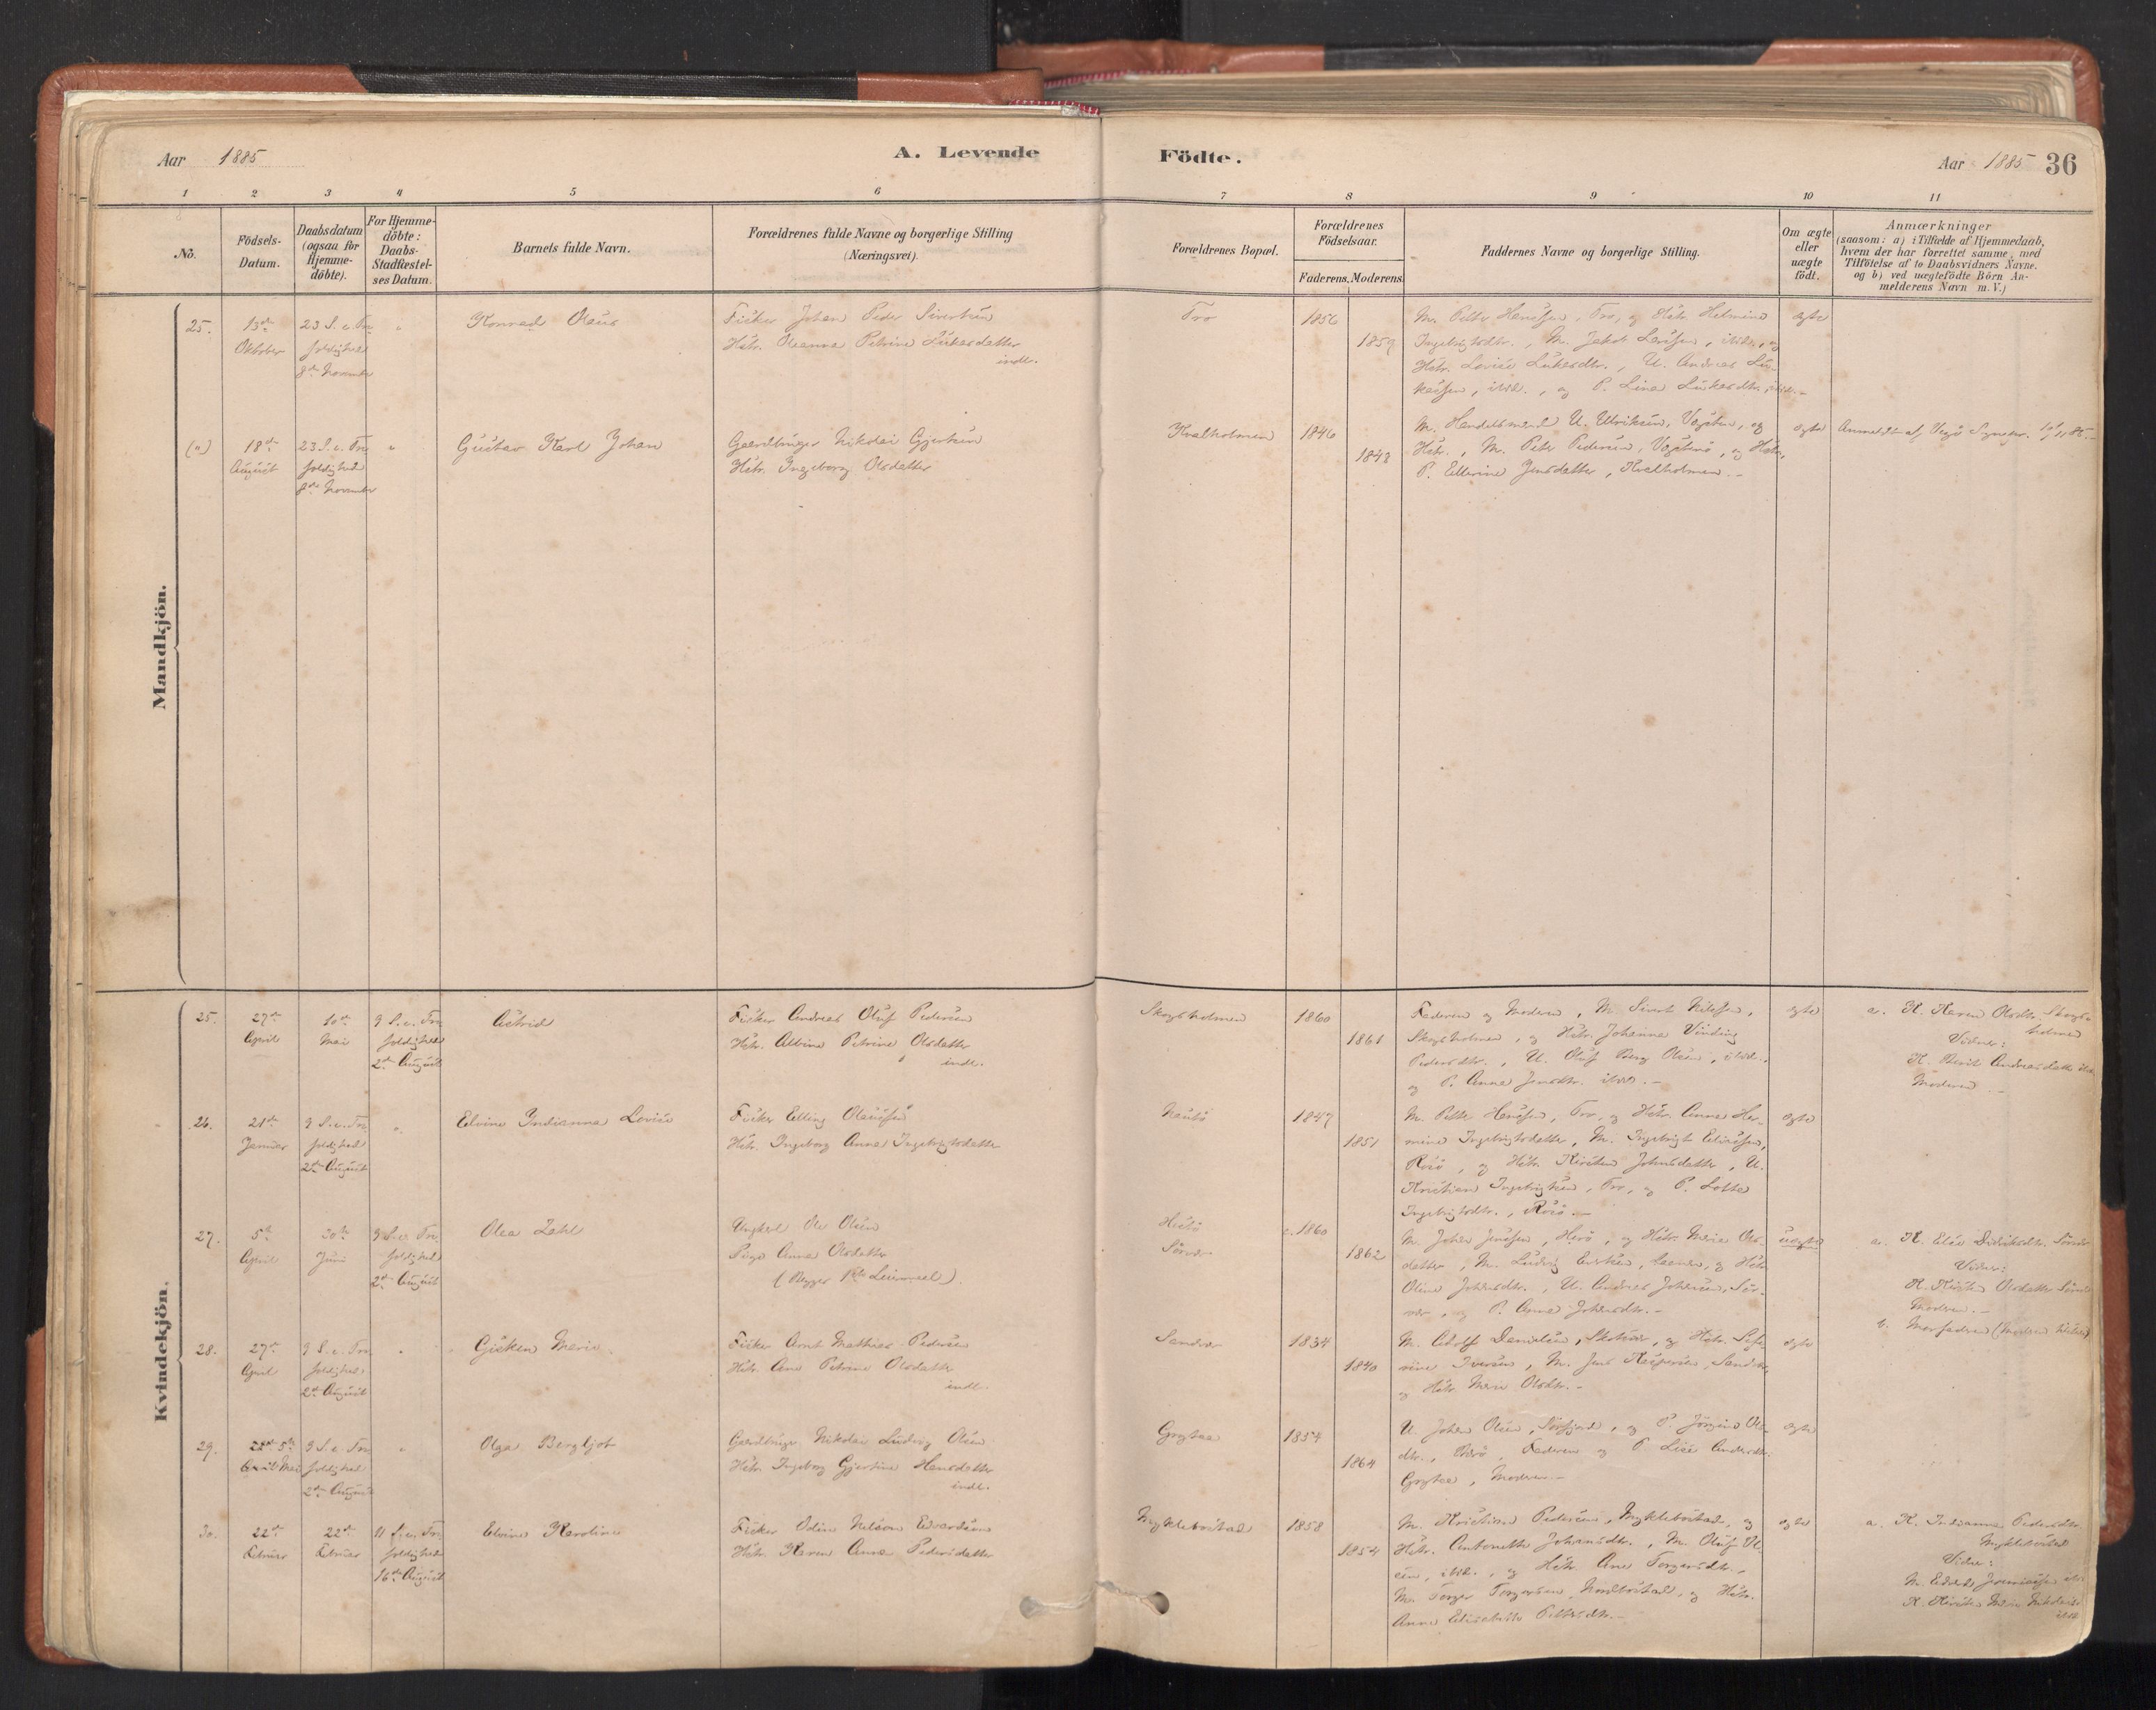 Aar 1885
A. Levende
Födte.
Aar 1885 36
1 2 3 4 5 6 7 8 9 10 11
No.
Födsels-
Datum.
Daabsdatum
(ogsaa for
Hjemme-
döbte).
For Hjemme-
döbte:
Daabs-
Stadfæstel-
ses Datum.
Barnets fulde Navn.
Forældrenes fulde Navne og borgerlige Stilling
(Næringsvei).
Forældrenes Bopæl.
Forældrenes
Födselsaar.
Faderens. Moderens.
Faddernes Navne og borgerlige Stilling.
Om ægte
eller
uægte
födt.
Anmærkninger
(saasom: a) i Tilfælde af Hjemmedaab,
hvem der har forrettet samme, med
Tilföielse af to Daabsvidners Navne.
og b) ved uægtefödte Börn An-
melderens Navn m. V.)
Mandkjön.
25.
13de
Oktober
23 S. e. Tre
foldighed
8de November
"
Konrad Olaus
Fisker Johan Peder Sivertsen
Hstr. Oleanna Petrine Lukasdatter
indl.
Tro
1856
1859
M. Petter Hansen, Tro, og Hstr. Helmine
Ingebrigtsdtr., M. Jakob Larsen, ibid., og
Hstr. Lovise Lukasdtr., U. Andreas Lu-
kassen, ibid., og P. Lina Lukasdtr. ibid.-
ægte
(")
18de
August
23 S. e. Tre
foldighed
8de November
"
Gustav Karl Johan
Gaardbruger Nikolai Gjertsen
Hstr. Ingeborg Olsdatter
Kvalholmen
1846
1848
M. Handelsmand U. Ulriksen, Vegsten, og
Hstr., M. Peter Pedersen,
P. Ellevine Jensdatter, Kvalholmen.-
ægte
Anmeldt af Vegö Sognepr. 10/11 85.-
Kvindekjön.
25.
27de
April
10de
Mai
9 S. e. Tre
foldighed
2den August
Astrid
Fisker Andreas Oluf Pedersen
Hstr. Albine Petrine Olsdatter
indl.
Skogsholmen
1860
1861
Faderen og Moderen, M. Sivert Nilssen,
Skogsholmen, og Hstr. Johanna Vinding
Pedersdtr., U. Oluf Berg Olsen, ibid.,
og P. Anna Jensdtr. ibid.-
ægte
a. K. Karen Olsdtr. Skogs-
holmen
Vidner:
K. Berit Andreasdatter ibid.
Moderen.-
26.
21de
Januar
9 S. e. Tre
foldighed
2den August
"
Elvine Indianna Lovise
Fisker Elling Olaussen
Hstr. Ingeborg Anna Ingebrigtsdatter
1847
1851
M. Petter Hansen, Tro, og Hstr. Anna Her-
mine Ingebrigtsdatter, M. Ingebrigt Eliassen,
Rosö, og Hstr. Kirsten Johnsdatter, U.
Kristian Ingebrigtsen, Tro, og P. Lotte
Ingebrigtsdtr., Rosö.-
ægte
27.
5te
April
30te
Juni
9 S. e. Tre
foldighed
2den August
Olea Zahl
Ungkarl Ole Olsen
Pige Anna Olsdatter
(Begges 1ste Leiermaal).
Sörvær
c. 1860
1862
M. Johan Jensen, Herö, og Hstr. Marie Ols-
datter, M. Ludvig
Oline Johansdtr., U. Andreas Johansen, Sör-
vær, og P. Anna Johansdtr.-
uægte
a. K. Elen Didriksdtr. Sörvær
Vidner:
K. Kirsten Olsdatter Sörvær
Moderen.-
b. Morfaderen
28.
27de
April
9 S. e. Tre
foldighed
2den August
"
Gusken Marie
Fisker Arnt Mathias Pedersen
Hstr. Ane Petrine Olsdatter
indl.
Sandvær
1834
1840
M. Adolf Danielsen, Skotsvær, og Hstr. Sefa-
nine Iversen, M. Jens Kaspersen, Sandvær,
og Hstr. Marie Olsdtr.-
ægte
29.
5te
Mai
9 S. e. Tre
foldighed
2den August
"
Olga Bergljot
Gaardbruger Nikolai Ludvig Olsen
Hstr. Ingeborg Gjertine Hansdatter
indl.
Grytaa
1854
1864
U. Johan Olsen, Sörfjord, og P. Jörgine Ols-
dtr., Faderen og P. Lise Andersdtr.
Grytaa, Moderen.-
ægte
30.
22de
Februar
22de
Februar
11 S. e. Tre
foldighed
16de August
Elvine Karoline
Fisker Odin Nelson Edvardsen
Hstr. Karen Anna Pedersdatter
Myklebostad
1858
1854
M. Kristian Pedersen, Myklebostad, og
Hstr. Antonette Johansdtr., M. Oluf Ol-
sen, ibid., og Hstr. Ane Torgersdtr.,
M. Torger Torgersen, Nordbostad, og Hstr.
Anne Elisabeth Pettersdtr.-
ægte
a. K. Indianna Pedersdtr.
Myklebostad
Vidner:
M. Edvard Jeremiassen ibid.
K. Kirsten Marie
ibid.